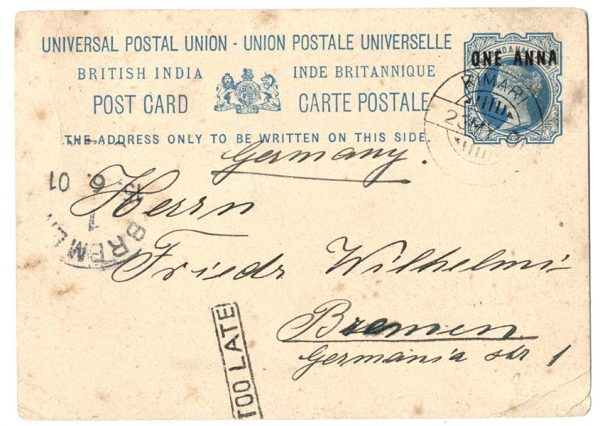 UNIVERSAL POSTAL UNION - UNION POSTALE UNIVERSELLE
BRITISH INDIA INDE BRITANNIQUE
POST CARD CARTE POSTALE
THE ADDRESS ONLY TO BE WRITTEN ON THIS SIDE.
ONE ANNA
MARI
23 MY 01
Germany.
Herrn
Friedr Wilhelmi
Bremen
Germania str 1
BREMEN
1
6. 01
TOO LATE